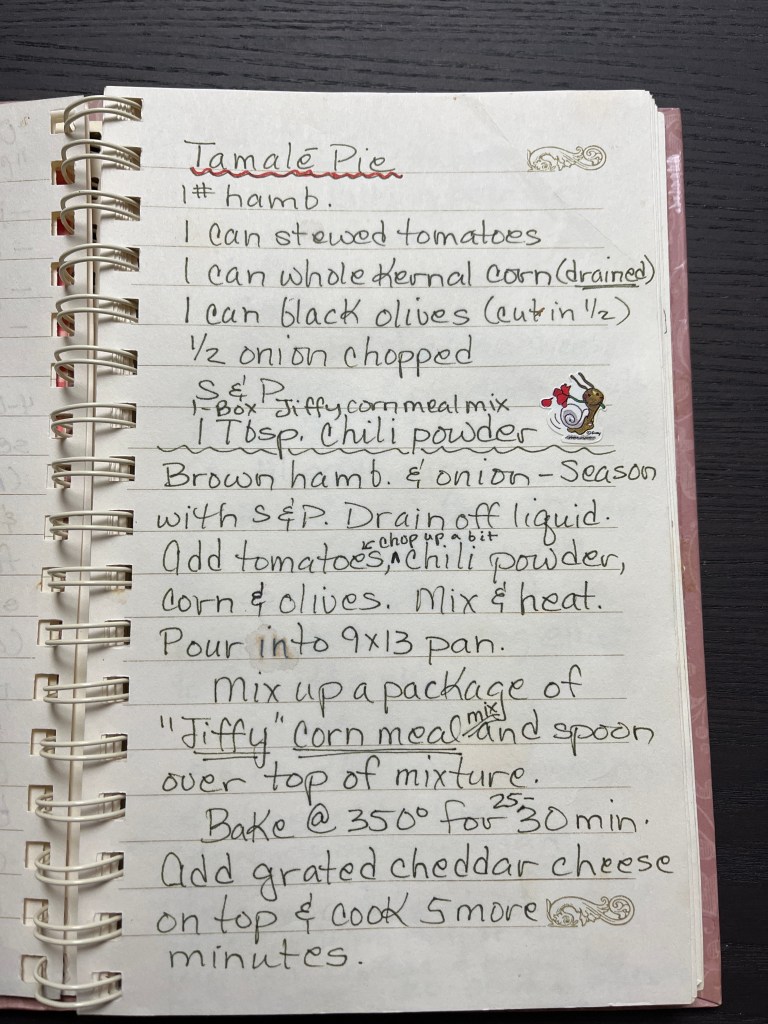 Tamalé Pie
1# hamb.
1 can stewed tomatoes
1 can whole Kernal corn (drained)
1 can black olives (cut in 1/2)
1/2 onion chopped
S & P
1-Box Jiffy corn meal mix
1 Tbsp. Chili powder
Brown hamb. & onion - Season
with S & P. Drain off liquid.
chop up a bit
Add tomatoes, chili powder,
corn & olives. Mix & heat.
Pour into 9x13 pan.
Mix up a package of
"Jiffy" corn meal mix and spoon
over top of mixture.
Bake @ 350° for 25-30 min.
Add grated cheddar cheese
on top & cook 5 more
minutes.